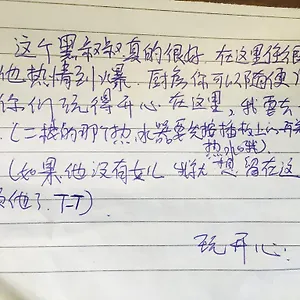 这个黑叔叔真的很好 在这里住很
他热情到爆. 厨房你可以随便
你们玩得开心 在这里, 我要去
(二楼的那个热水器要先按插板上的
热水哦)
(如果他没有女儿 我就想留在这
他了. T-T)
玩开心.